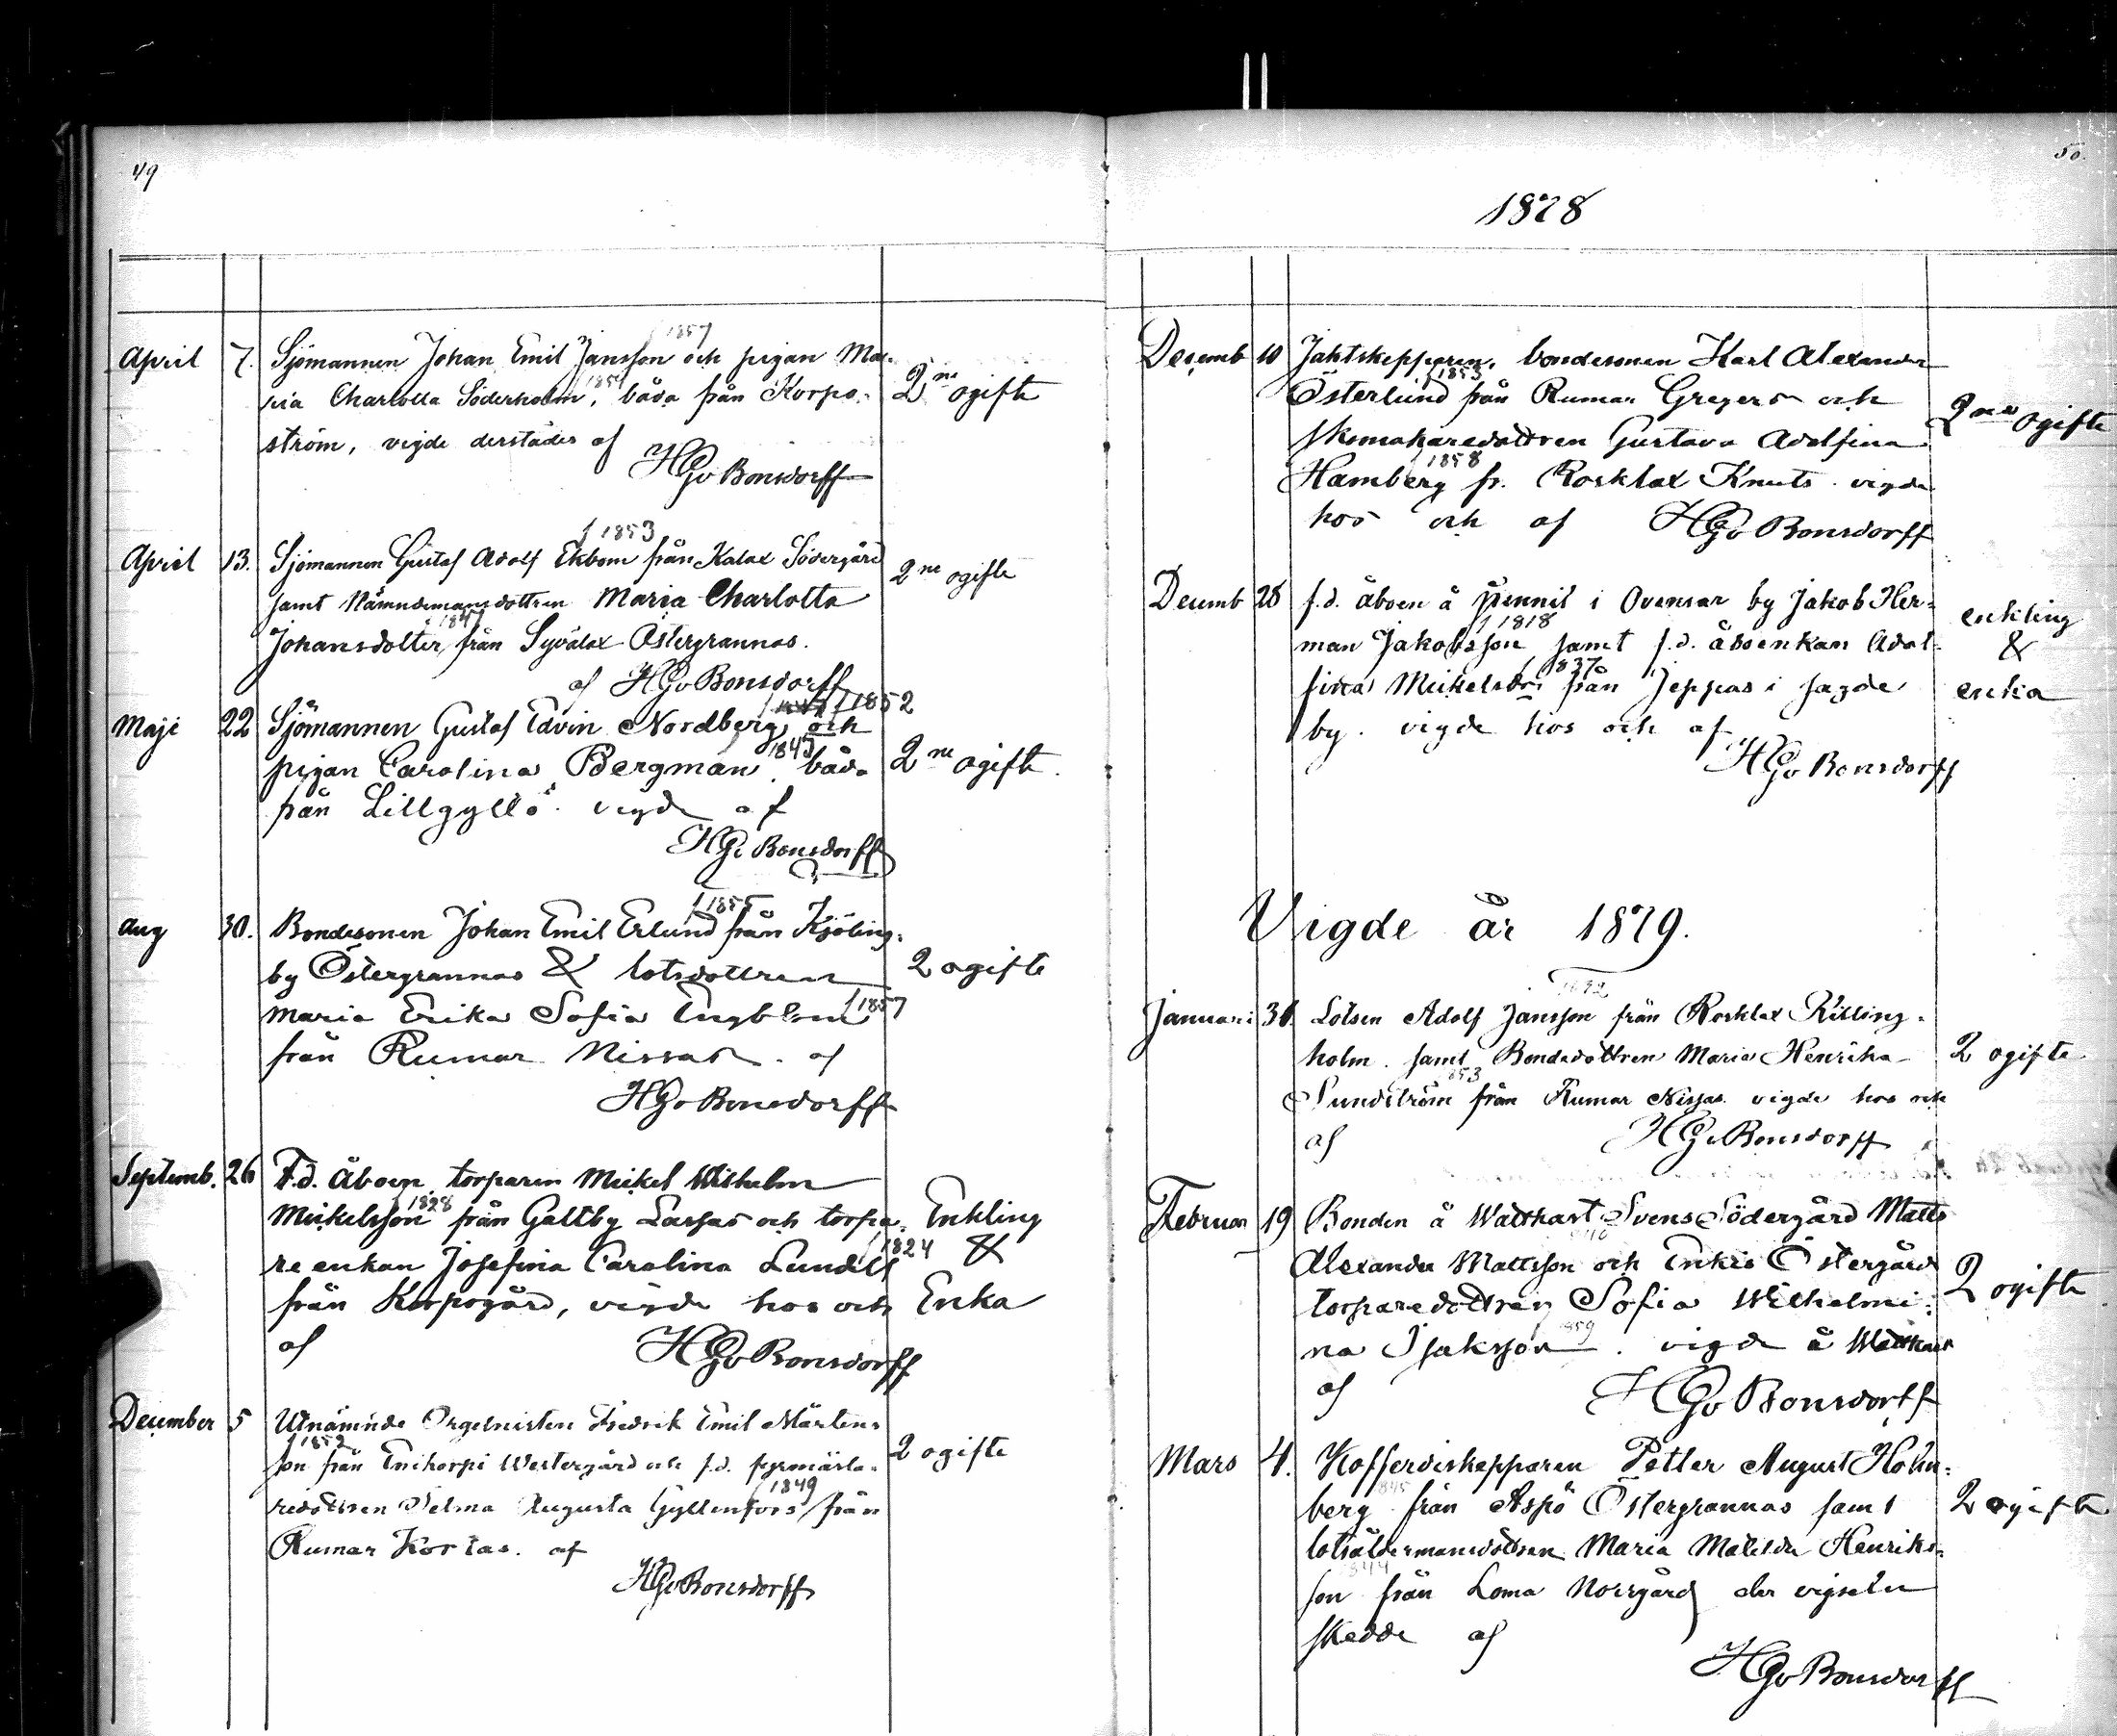 49
April 7. Sjömannen Johan Emil Jansson f 1857 och pigan Ma-
ria Charlotta Söderholm, f 1854 båda från Korpo-
ström, vigde derstädes af
2ne ogifte
HGvBonsdorff
April 13. Sjömannen Gustaf Adolf Ekbom f 1853 från Kalax Södergård
samt Nämndemansdottren Maria Charlotta
Johansdotter, 1847 från Syvälax Östergrannas.
2ne ogifte
af HGvBonsdorff
Maji 22 Sjömannen Gustaf Edvin Nordberg f 1852 och
pigan Carolina Bergman 1845 båda
från Lillgyltö. vigde af
2ne ogifte.
HGvBonsdorff
Aug 30. Bondesonen Johan Emil Erlund f 1855 från Kjöling-
by Östergrannas & lotsdottren
Maria Erika Sofia Engblom f 1857
från Rumar Nissas. af
2 ogifte
HGvBonsdorff
Septemb. 26 F.d. Åboen, torparen Mickel Wilhelm
Mickelsson f 1828 från Galtby Lassas och torpa-
re enkan Josefina Carolina Lundell f 1824
från Korpogård, vigde hos och
af
Enkling
&
Enka
HGvBonsdorff
December 5 Utnämnde Orgelnisten Fredrik Emil Mårtens-
son f 1852 från Enikorpi Westergård och f.d. fyrmästa-
redottren Selma Augusta Gyllenfors f 1849 från
Rumar Kortas. af
2 ogifte
HGvBonsdorff
50.
1878
Decemb 10 Jaktskepparen, bondesonen Karl Alexander
Österlund f 1853 från Rumar Gregers och
skomakaredottren Gustava Adolfina
Hamberg f 1858 fr. Rosklax Knuts. vigde
hos och af HGvBonsdorff
2ne ogifte
Decemb 28 f.d. åboen å Pennis i Ovensar by Jakob Her-
man Jakobsson f 1818 samt f.d. åboenkan Adol-
fina Mickelsdr f 1837 från Jeppas i sagde
by. vigde hos och af
enkling
&
enka
HGvBonsdorff
Vigde år 1879.
Januari 31. Lotsen Adolf Jansson från Rosklax Killing-
holm. samt Bondedottren Maria Henrika
Sundström 1853 från Rumar Nissas. vigde hos och
af HGvBonsdorff
2 ogifte
Februari 19 Bonden å Wattkast Svens Södergård Matts
Alexander Mattsson och Enkis Östergård
torparedottren Sofia Wilhelmi-
na Isaksson 1859. vigde å Wattkast
af
2 ogifte
HGvBonsdorff
Mars 4. Kofferdiskepparen Petter August Holm-
berg 1845 från Aspö Östergrannas samt
lotsåldermansdottren Maria Matilda Henriks-
son 1844 från Loma Norrgård der vigseln
skedde af
2 ogifte
HGvBonsdorff